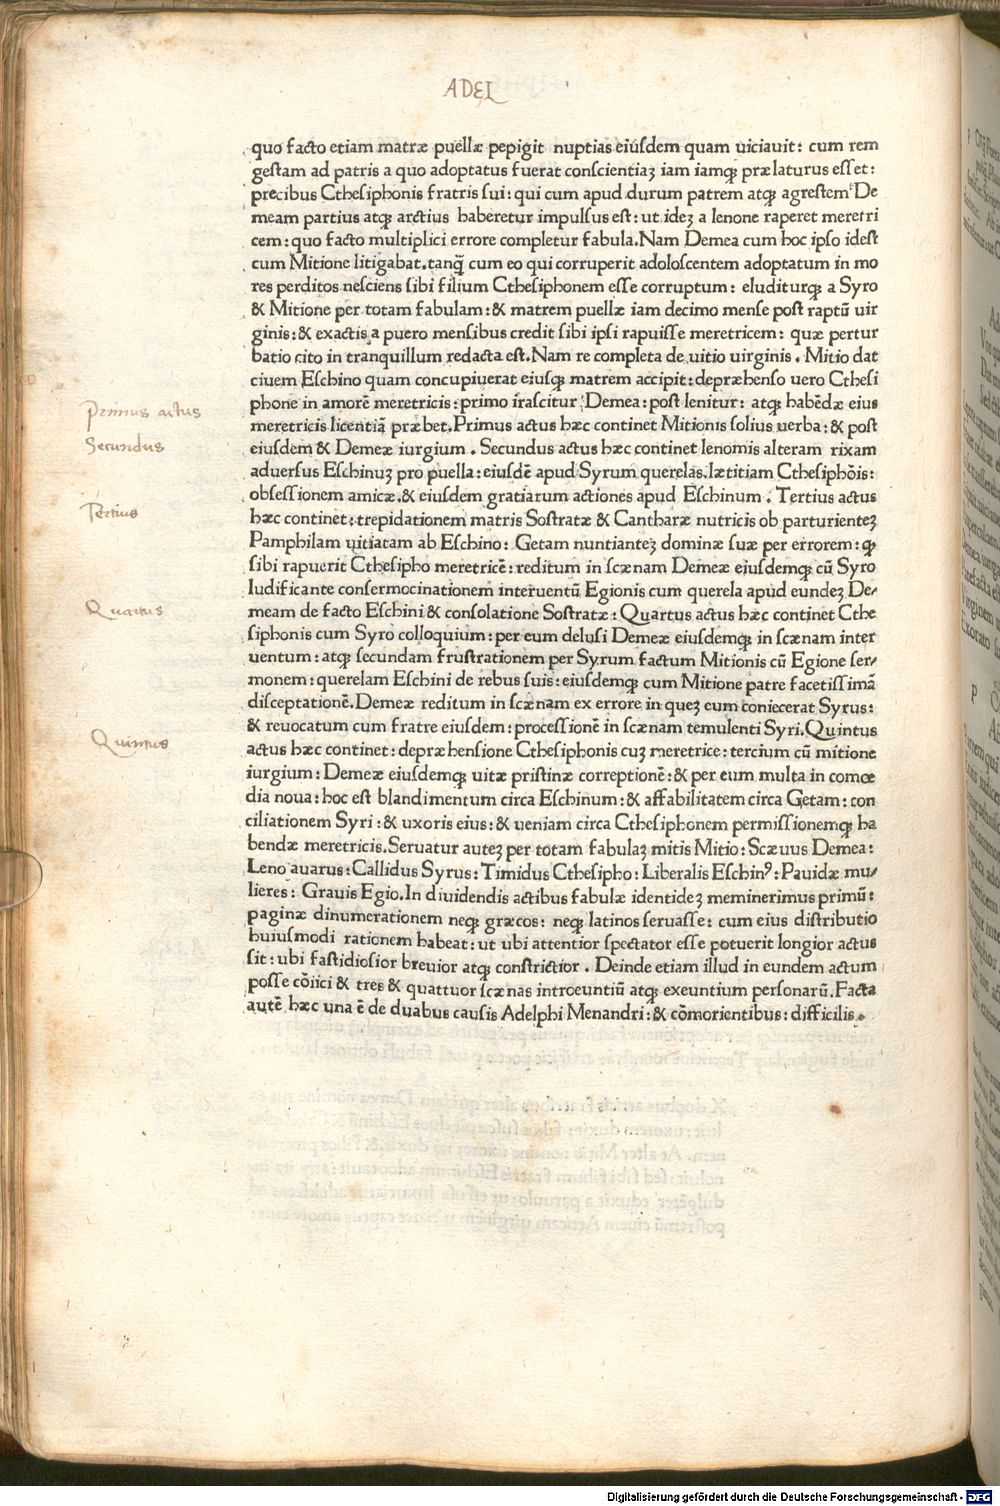 ADEL
quo facto etiam matræ puellæ pepigit nuptias eiusdem quam uiciauit: cum rem
gestam ad patris a quo adoptatus fuerat conscientiaꝫ iam iamqꝫ prælaturus esset:
precibus Cthesiphonis fratris sui: qui cum apud durum patrem atqꝫ agrestem De
meam partius atqꝫ arctius haberetur impulsus est: ut ideꝫ a lenone raperet meretri
cem: quo facto multiplici errore completur fabula. Nam Demea cum hoc ipso idest
cum Mitione litigabat. tanq̃ cum eo qui corruperit adoloscentem adoptatum in mo
res perditos nesciens sibi filium Cthesiphonem esse corruptum: eluditurqꝫ a Syro
& Mitione per totam fabulam: & matrem puellæ iam decimo mense post raptū uir
ginis: & exactis a puero mensibus credit sibi ipsi rapuisse meretricem: quæ pertur
batio cito in tranquillum redacta est. Nam re completa de uitio uirginis. Mitio dat
ciuem Eschino quam concupiuerat eiusqꝫ matrem accipit: depræhenso uero Cthesi
phone in amorē meretricis: primo irascitur Demea: post lenitur: atqꝫ habēdæ eius
meretricis licentiā præbet. Primus actus hæc continet Mitionis solius uerba: & post
eiusdem & Demeæ iurgium. Secundus actus hæc continet lenomis alteram rixam
aduersus Eschinuꝫ pro puella: eiusdē apud Syrum querelas. lætitiam Cthesiphōis:
obsessionem amicæ. & eiusdem gratiarum actiones apud Eschinum. Tertius actus
hæc continet: trepidationem matris Sostratæ & Cantharæ nutricis ob parturienteꝫ
Pamphilam uitiatam ab Eschino: Getam nuntianteꝫ dominæ suæ per errorem: qꝫ
sibi rapuerit Cthesipho meretricē: reditum in scænam Demeæ eiusdemqꝫ cū Syro
ludificante consermocinationem interuentū Egionis cum querela apud eundeꝫ De/
meam de facto Eschini & consolatione Sostratæ: Quartus actus hæc continet Cthe
siphonis cum Syro colloquium: per eum delusi Demeæ eiusdemqꝫ in scænam inter
uentum: atqꝫ secundam frustrationem per Syrum factum Mitionis cū Egione ser/
monem: querelam Eschini de rebus suis: eiusdemqꝫ cum Mitione patre facetissimā
disceptationē. Demeæ reditum in scænam ex errore in queꝫ eum coniecerat Syrus:
& reuocatum cum fratre eiusdem: processionē in scænam temulenti Syri. Quintus
actus hæc continet: depræhensione Cthesiphonis cuꝫ meretrice: tercium cū mitione
iurgium: Demeæ eiusdemqꝫ uitæ pristinæ correptionē: & per eum multa in comœ
dia noua: hoc est blandimentum circa Eschinum: & affabilitatem circa Getam: con
ciliationem Syri: & uxoris eius: & ueniam circa Cthesiphonem permissionemqꝫ ha
bendæ meretricis. Seruatur auteꝫ per totam fabulaꝫ mitis Mitio: Scæuus Demea:
Leno auarus: Callidus Syrus: Timidus Cthesipho: Liberalis Eschinꝰ: Pauidæ mu/
lieres: Grauis Egio. In diuidendis actibus fabulæ identideꝫ meminerimus primū:
paginæ dinumerationem neqꝫ græcos: neqꝫ latinos seruasse: cum eius distributio
huiusmodi rationem habeat: ut ubi attentior spectator esse potuerit longior actus
sit: ubi fastidiosior breuior atqꝫ constrictior. Deinde etiam illud in eundem actum
posse cōiici & tres & quattuor scænas introeuntiū atqꝫ exeuntium personarū. Facta
autē hæc una ē de duabus causis Adelphi Menandri: & cōmorientibus: difficilis.
Primus actus
Secundus
Tertius
Quartus
Quintus
Digitalisierung gefördert durch die Deutsche Forschungsgemeinschaft - DFG